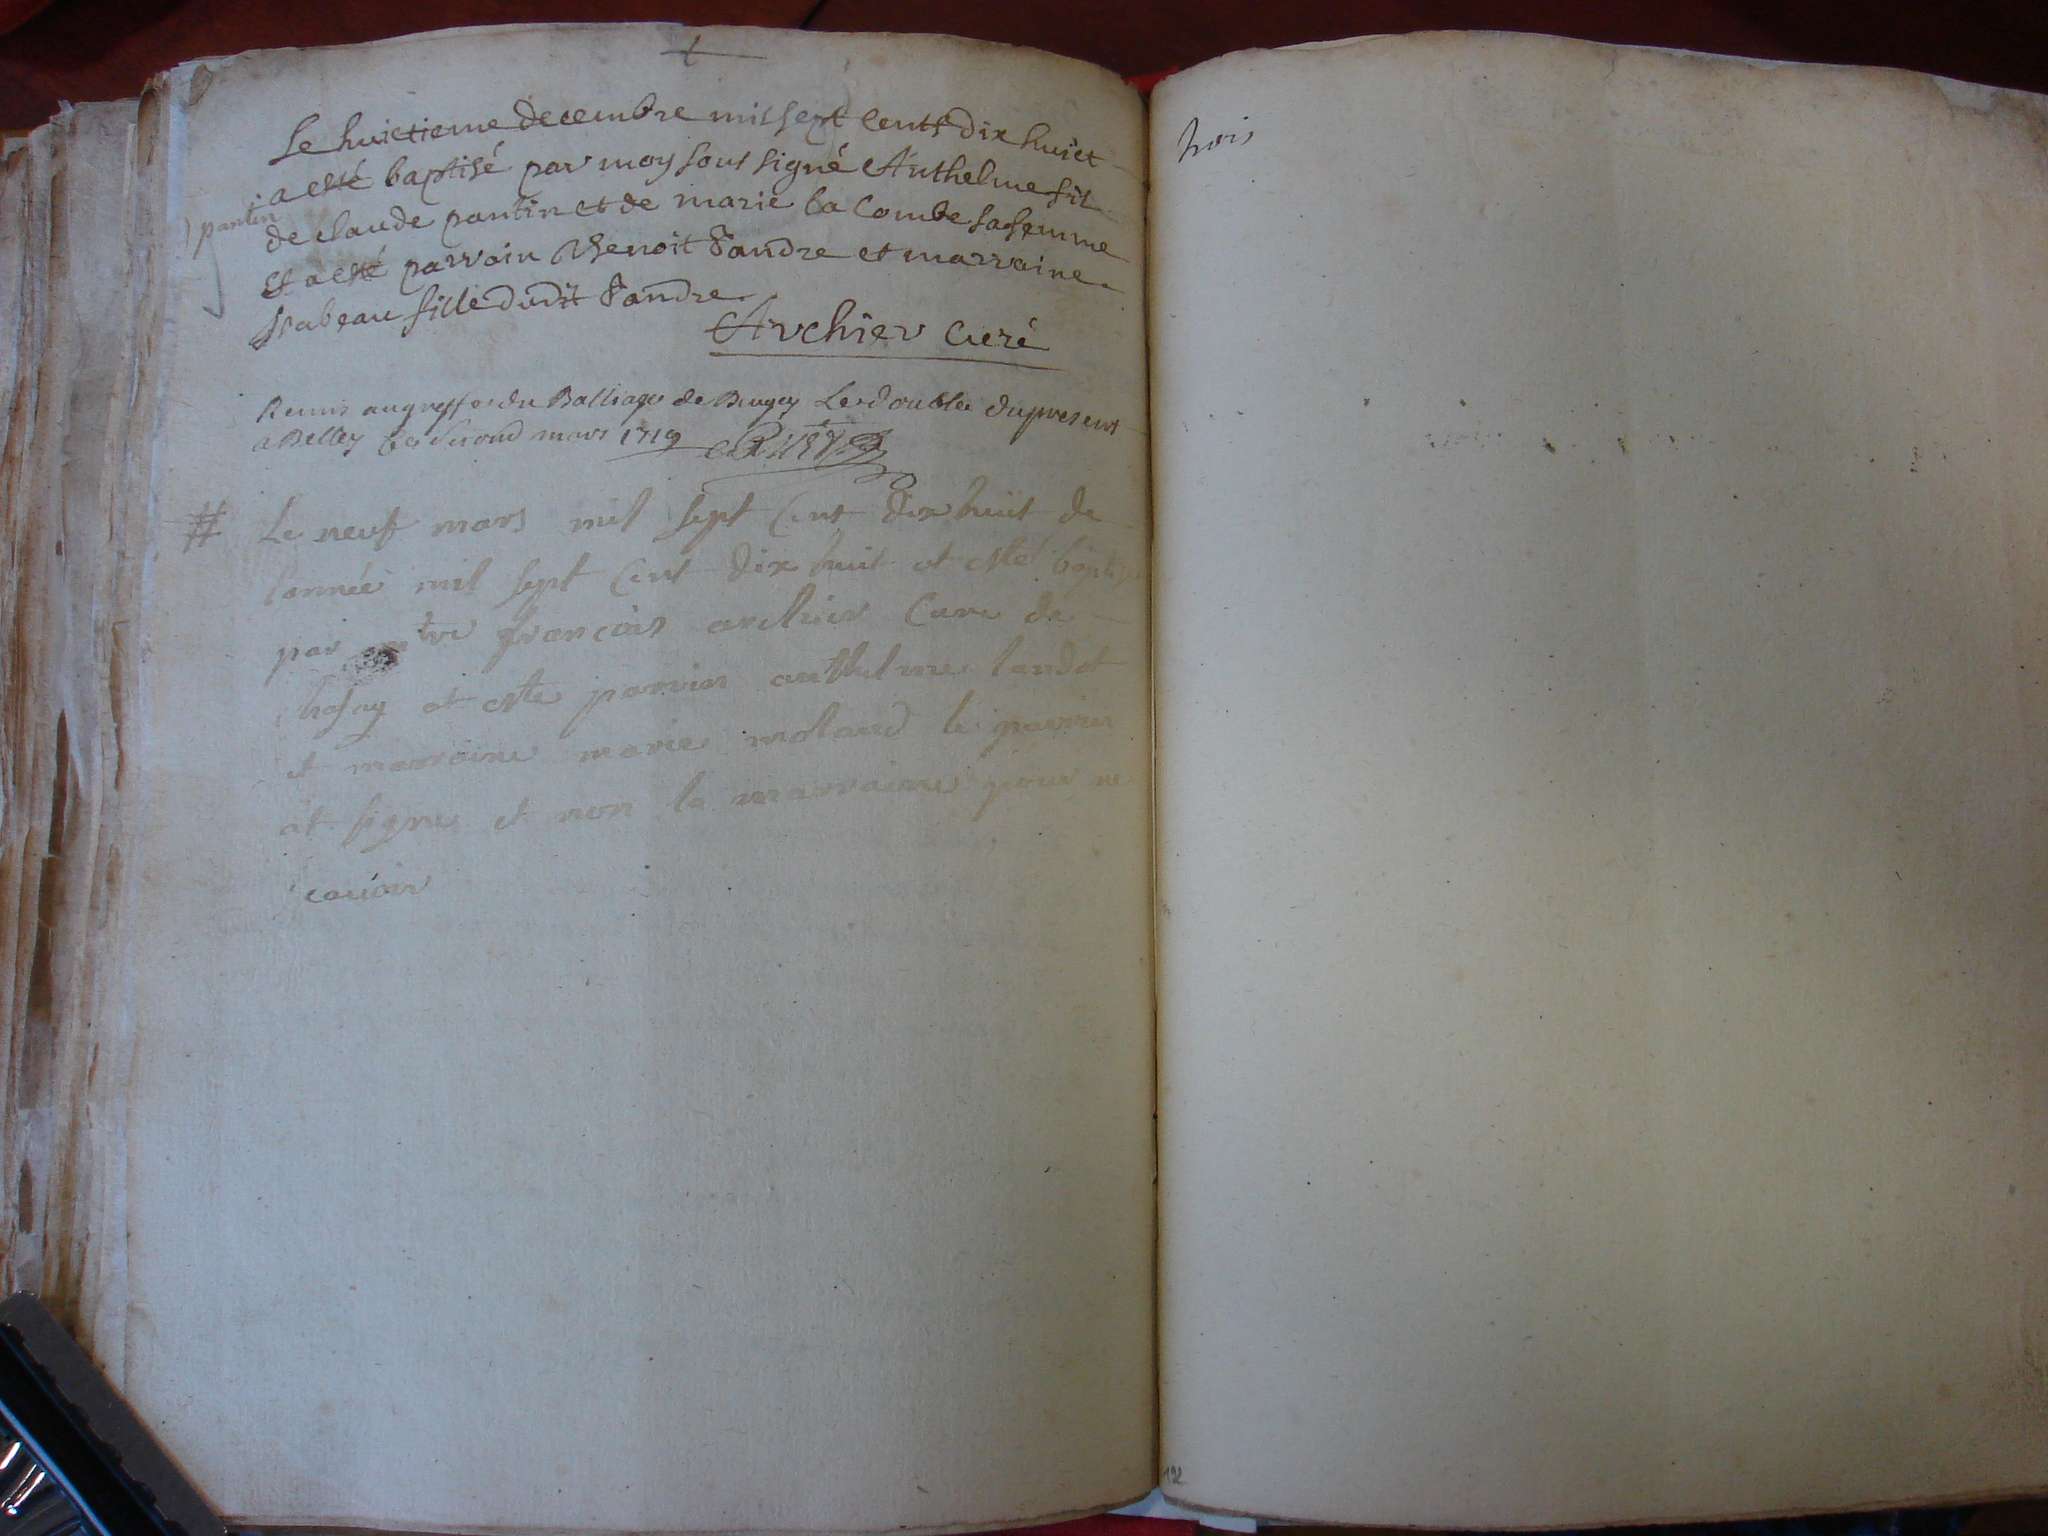 Le huictieme decembre mil sept cents dix huict
a esté baptisé par moy sous signé Anthelme fils
pantin
de claude pantin et de marie la Combe sa femme
et a esté parrain Benoit Tandre et marraine
Isabeau fille dudit Tandre
Archier Curé
Remis au greffe du Balliage de Bugey Le double du present
a Belley le second mars 1719
# Le neuf mars mil sept Cent dix huit de
lannée mil sept Cent dix huit at esté baptisé
par françois archier Cure de
at este parrin anthelme landot
et marraine marie molard le parrin
at signe et non la marraine pour ne
savoir
trois
192